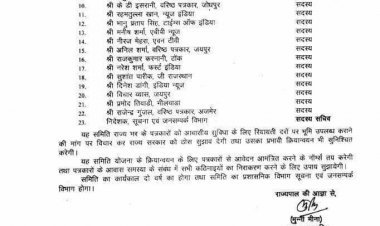 10. श्री के डी इसरानी, वरिष्ठ पत्रकार, जोधपुर सदस्य
11. श्री रहमतुल्ला खान, न्यूज इंडिया सदस्य
12. श्री भानु प्रताप सिंह, टाईम्स ऑफ इंडिया सदस्य
13. श्री मनीष शर्मा, एबीपी न्यूज सदस्य
14. श्री नीरज मेहरा, एवन टीवी सदस्य
15. श्री अनिल शर्मा, वरिष्ठ पत्रकार, जयपुर सदस्य
16. श्री राजकुमार करनानी, टोंक सदस्य
17. श्री नरेश शर्मा, फर्स्ट इंडिया सदस्य
18. श्री सुशांत पारीक, जी राजस्थान सदस्य
19. श्री दिनेश डांगी, इंडिया न्यूज सदस्य
20. श्री विचार व्यास, जयपुर सदस्य
21. श्री प्रमोद तिवाड़ी, भीलवाडा सदस्य
22. श्री राजेन्द्र गुंजल, वरिष्ठ पत्रकार, अजमेर सदस्य
23. निदेशक, सूचना एवं जनसम्पर्क विभाग सदस्य सचिव
यह समिति राज्य भर के पत्रकारों को आवासीय सुविधा के लिए रियायती दरों पर भूमि उपलब्ध कराने
की मांग पर विचार कर राज्य सरकार को ठोस सुझाव देगी तथा उसका प्रभावी क्रियान्वयन भी सुनिश्चित
करेगी।
यह समिति योजना के क्रियान्वयन के लिए पत्रकारों से आवेदन आमंत्रित करने के नॉर्म्स तय करेगी
तथा पत्रकारों के आवास समस्या के संबंध में सभी कठिनाइयों का निराकरण करने के लिए उपाय सुझायेगी।
समिति का कार्यकाल दो वर्ष का होगा तथा समिति का प्रशासनिक विभाग सूचना एवं जनसम्पर्क
विभाग होगा।
राज्यपाल की आज्ञा से,
(मुन्नी मीना)